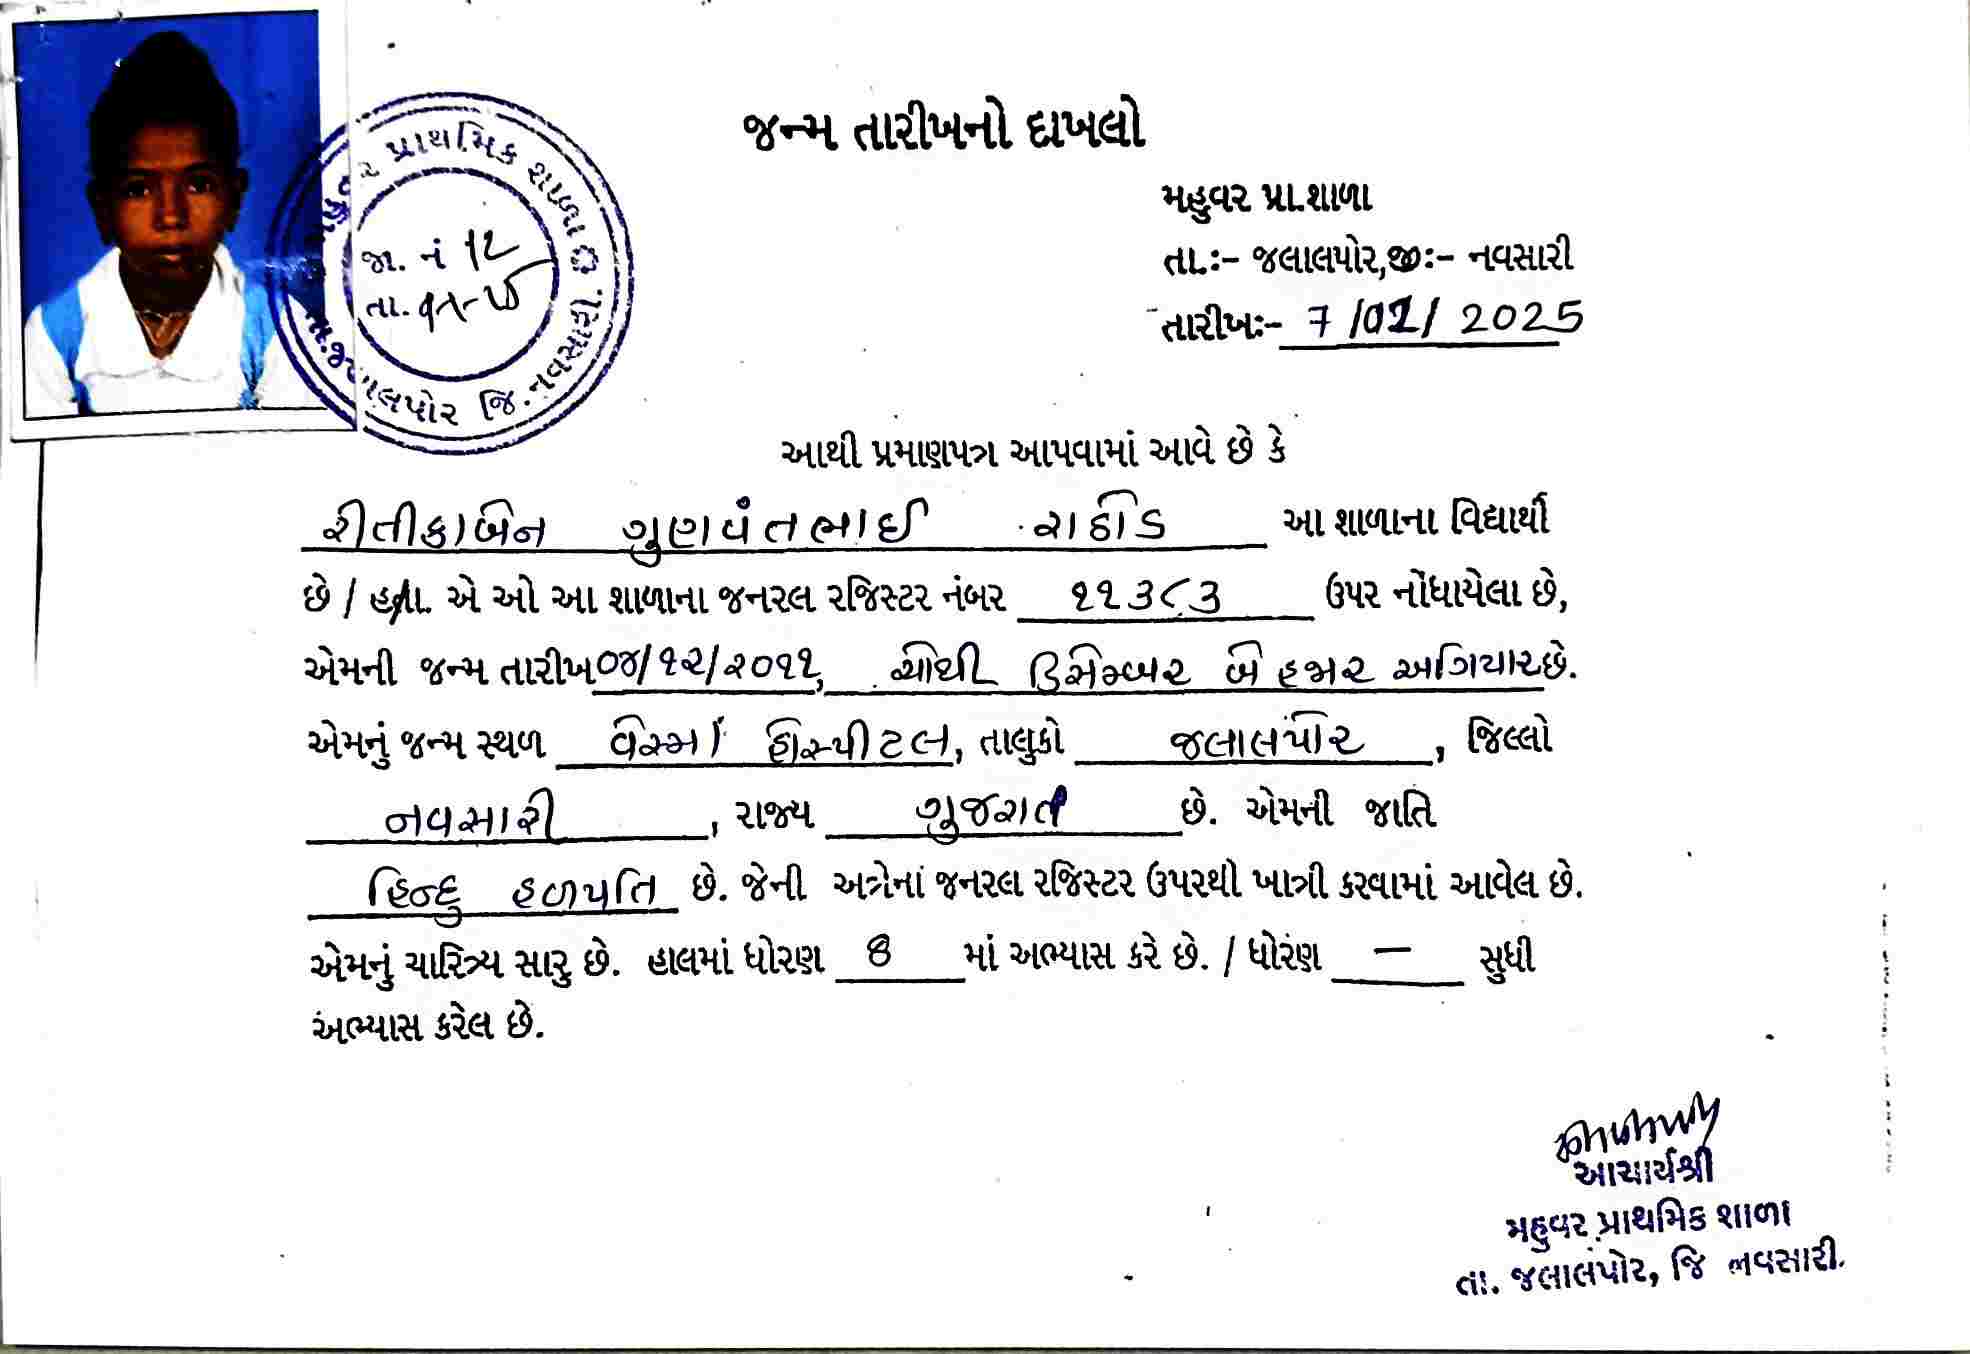 મહુવર પ્રાથમિક શાળા
જા. નં 12
તા.
તા.જલાલપોર જિ.નવસારી.
જન્મ તારીખનો દાખલો
મહુવર પ્રા.શાળા
તા.:- જલાલપોર,જી:- નવસારી
તારીખ:- 7/01/2025
આથી પ્રમાણપત્ર આપવામાં આવે છે કે
રીતીકાબેન ગુણવંતભાઈ રાઠોડ આ શાળાના વિદ્યાર્થી
છે / હતા. એ ઓ આ શાળાના જનરલ રજિસ્ટર નંબર ૧૧૩૮૩ ઉપર નોંધાયેલા છે,
એમની જન્મ તારીખ ૦૪/૧૨/૨૦૧૧, ચોથી ડિસેમ્બર બે હજાર અગિયાર છે.
એમનું જન્મ સ્થળ વેસ્માં હોસ્પીટલ, તાલુકો જલાલપોર, જિલ્લો
નવસારી, રાજ્ય ગુજરાત છે. એમની જાતિ
હિન્દુ હળપતિ છે. જેની અત્રેનાં જનરલ રજિસ્ટર ઉપરથી ખાત્રી કરવામાં આવેલ છે.
એમનું ચારિત્ર્ય સારુ છે. હાલમાં ધોરણ 8 માં અભ્યાસ કરે છે. / ધોરણ — સુધી
અભ્યાસ કરેલ છે.
આચાર્યશ્રી
મહુવર પ્રાથમિક શાળા
તા. જલાલપોર, જિ નવસારી.